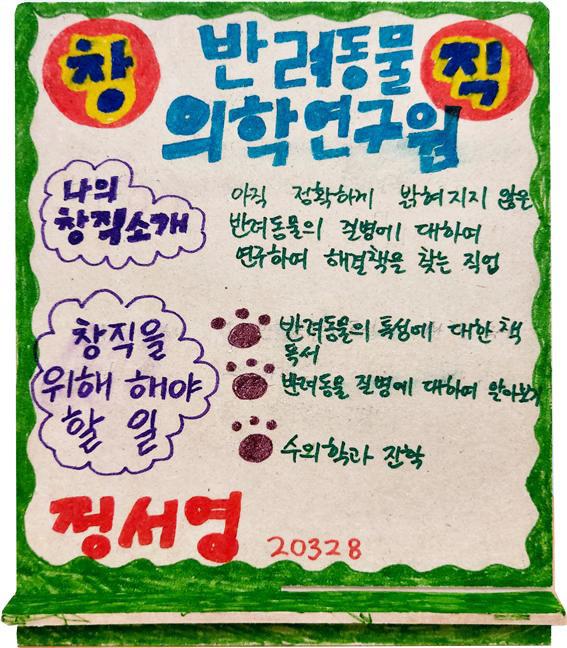 창 반려동물 직
의학연구원
나의
창직소개
아직 정확하게 밝혀지지 않은
반려동물의 질병에 대하여
연구하여 해결책을 찾는 직업
창직을
위해 해야
할 일
반려동물의 특성에 대한 책
독서
반려동물 질병에 대하여 알아보기
수의학과 진학
정서영
20328